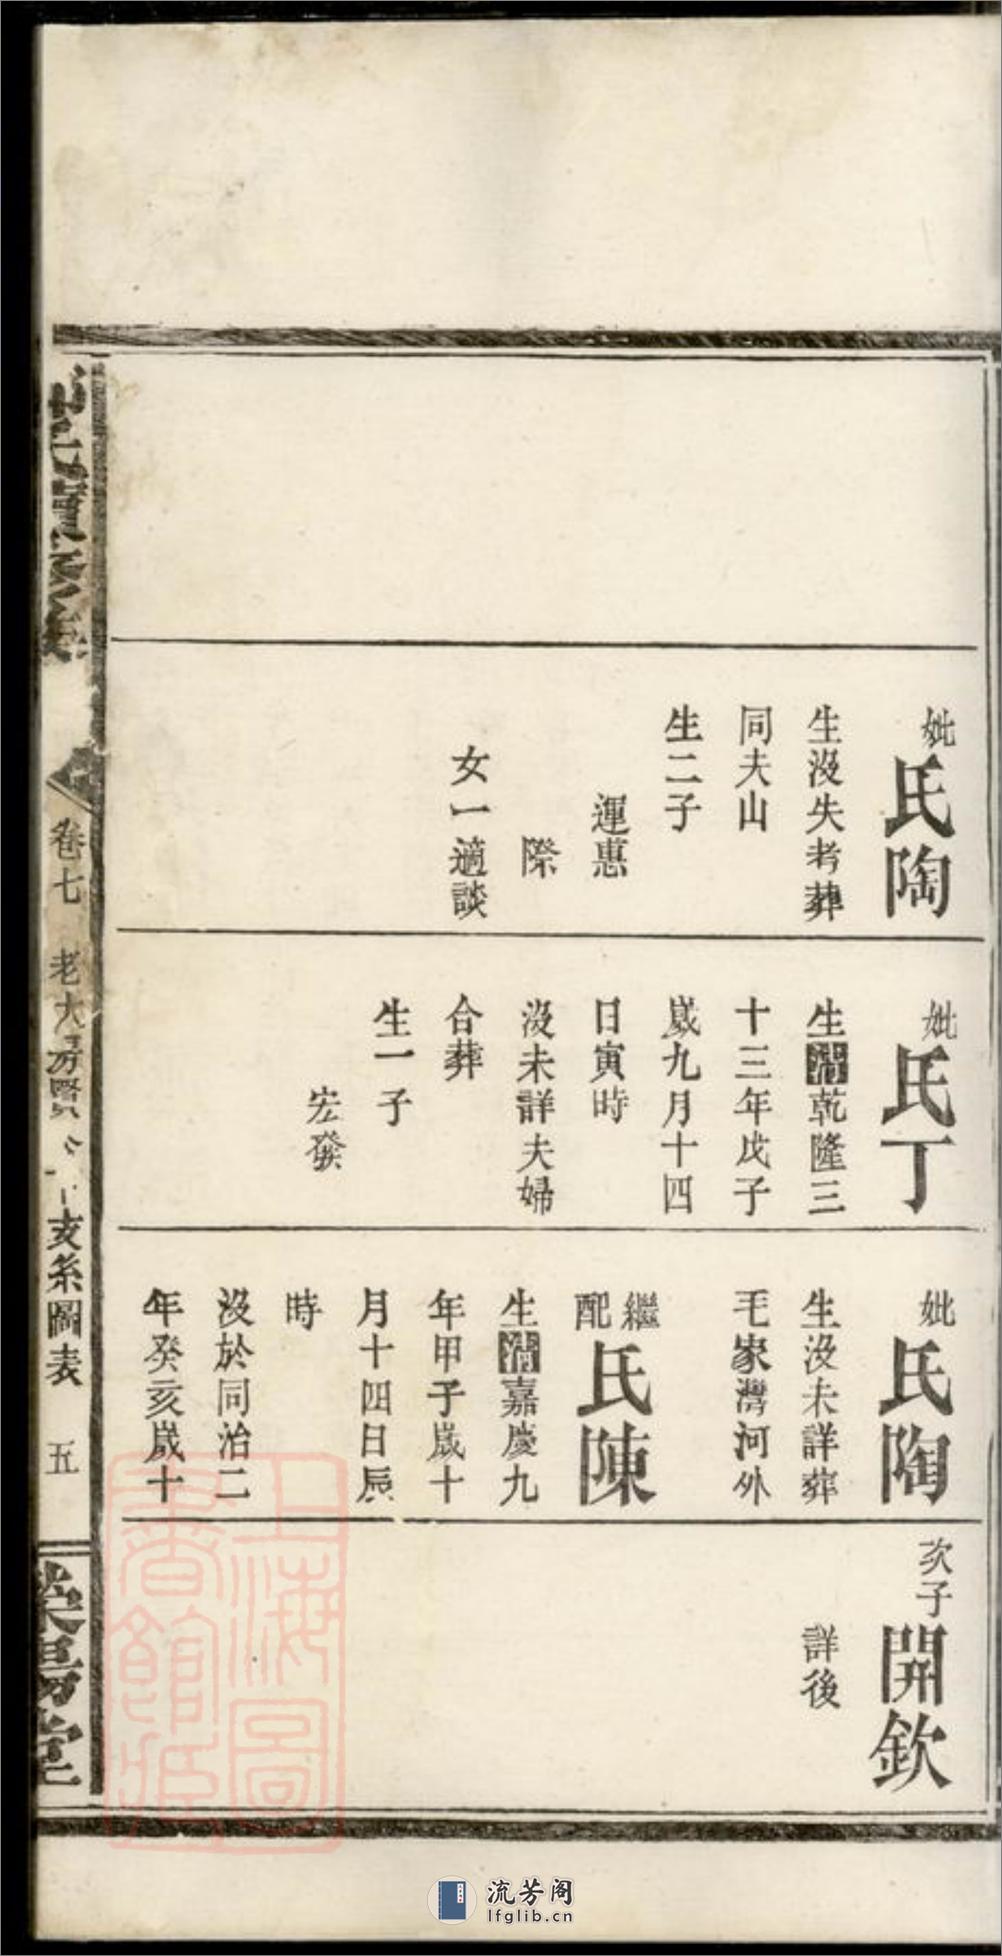 妣
氏陶
生沒失考葬
同夫山
生二子
運惠
際
女一適談
妣
氏丁
生清乾隆三
十三年戊子
歲九月十四
日寅時
沒未詳夫婦
合葬
生一子
宏發
妣
氏陶
生沒未詳葬
毛家灣河外
繼配
氏陳
生清嘉慶九
年甲子歲十
月十四日辰
時
沒於同治二
年癸亥歲十
次子
開欽
詳後
氏續修
卷七
老大房賢
支系圖表
五
堂
上海圖書館藏
流芳阁
lfglib.cn